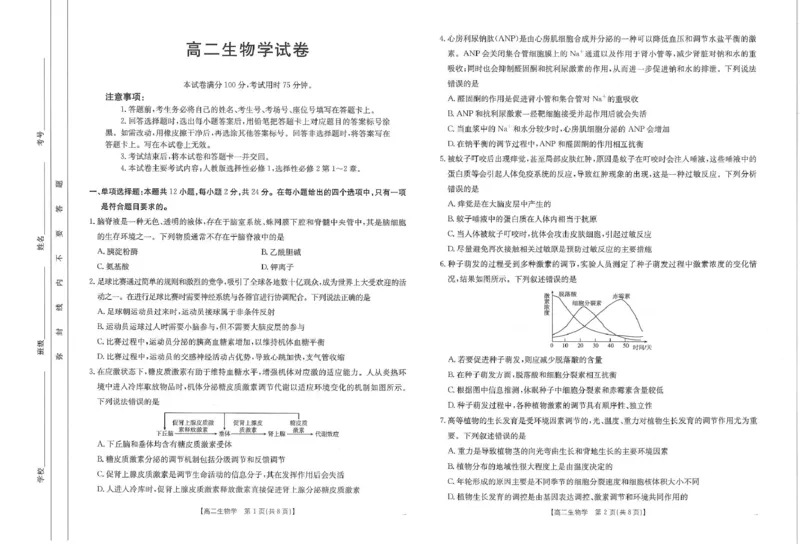 高二生物学试卷
本试卷满分100分,考试用时75分钟。
注意事项:
1.答题前,考生务必将自己的姓名、考生号、考场号、座位号填写在答题卡上。
2.回答选择题时,选出每小题答案后,用铅笔把答题卡上对应题目的答案标号涂
黑。如需改动,用橡皮擦干净后,再选涂其他答案标号。回答非选择题时,将答案写在
答题卡上。写在本试卷上无效。
3.考试结束后,将本试卷和答题卡一并交回。
4.本试卷主要考试内容:人教版选择性必修1,选择性必修2第1～2章。
一、单项选择题:本题共12小题,每小题2分,共24分。在每小题给出的四个选项中,只有一项
是符合题目要求的。
1.脑脊液是一种无色、透明的液体,存在于脑室系统、蛛网膜下腔和脊髓中央管中,其是脑细胞
的生存环境之一。下列物质通常不存在于脑脊液中的是
A.胰淀粉酶 B.乙酰胆碱
C.氨基酸 D.钾离子
2.足球比赛通过简单的规则和激烈的竞争,吸引了全球各地数十亿观众,成为世界上大受欢迎的活
动之一。在进行足球比赛时需要神经系统与各器官进行协调配合。下列说法正确的是
A.足球朝运动员过来时,运动员接球属于非条件反射
B.运动员运球过人时需要小脑参与,但不需要大脑皮层的参与
C.比赛过程中,运动员分泌的胰高血糖素增加,以维持机体血糖平衡
D.比赛过程中,运动员的交感神经活动占优势,导致心跳加快,支气管收缩
3.在应激状态下,糖皮质激素有助于维持血糖水平,增强机体对应激的适应能力。人从炎热环
境中进入冷库取放物品时,机体分泌糖皮质激素调节代谢以适应环境变化的机制如图所示。
下列说法错误的是
促肾上腺皮质激素释放激素 促肾上腺皮质激素 糖皮质激素
下丘脑 垂体 肾上腺 代谢效应
A.下丘脑和垂体均含有糖皮质激素受体
B.糖皮质激素分泌的调节机制包括分级调节和反馈调节
C.促肾上腺皮质激素是调节生命活动的信息分子,其在发挥作用后会失活
D.人进入冷库时,促肾上腺皮质激素释放激素直接促进肾上腺分泌糖皮质激素
【高二生物学 第1页(共8页)】
4.心房利尿钠肽(ANP)是由心房肌细胞合成并分泌的一种可以降低血压和调节水盐平衡的激
素。ANP会关闭集合管细胞膜上的Na⁺通道以及作用于肾小管等,减少肾脏对钠和水的重
吸收;同时也会抑制醛固酮和抗利尿激素的作用,从而进一步促进钠和水的排泄。下列说法
错误的是
A.醛固酮的作用是促进肾小管和集合管对Na⁺的重吸收
B.ANP和抗利尿激素一经靶细胞接受并起作用后就会失活
C.当血浆中的Na⁺和水分较少时,心房肌细胞分泌的ANP会增加
D.在钠平衡的调节过程中,ANP和醛固酮的作用相互抗衡
5.被蚊子叮咬后出现痒觉,甚至局部皮肤红肿,原因是蚊子在叮咬时会注入唾液,这些唾液中的
蛋白质等会引起人体免疫系统的反应,导致红肿现象的出现,这是一种过敏反应。下列分析
错误的是
A.痒觉是在大脑皮层中产生的
B.蚊子唾液中的蛋白质在人体内相当于抗原
C.当人体被蚊子叮咬时,抗体会攻击皮肤细胞,引起过敏反应
D.尽量避免再次接触相关过敏原是预防过敏反应的主要措施
6.种子萌发的过程受到多种激素的调节,实验人员测定了种子萌发过程中激素浓度的变化情
况,结果如图所示。下列叙述错误的是
激素浓度
脱落酸
细胞分裂素
赤霉素
0 10 20 30 40 50 时间/天
A.若要促进种子萌发,则应减少脱落酸的含量
B.在种子萌发方面,脱落酸和细胞分裂素相互抗衡
C.根据图中信息推测,休眠种子中细胞分裂素和赤霉素含量较低
D.种子萌发过程中,各种植物激素的调节具有顺序性、独立性
7.高等植物的生长发育是受环境因素调节的,光、温度、重力对植物生长发育的调节作用尤为重
要。下列叙述错误的是
A.重力是导致植物茎的向光弯曲生长和背地生长的主要环境因素
B.植物分布的地域性很大程度上是由温度决定的
C.年轮形成的原因主要是不同季节的细胞分裂速度和细胞核体积大小不同
D.植物生长发育的调控是由基因表达调控、激素调节和环境共同作用的
【高二生物学 第2页(共8页)】
学校
班级
姓名
考号
密
封
线
内
不
要
答
题